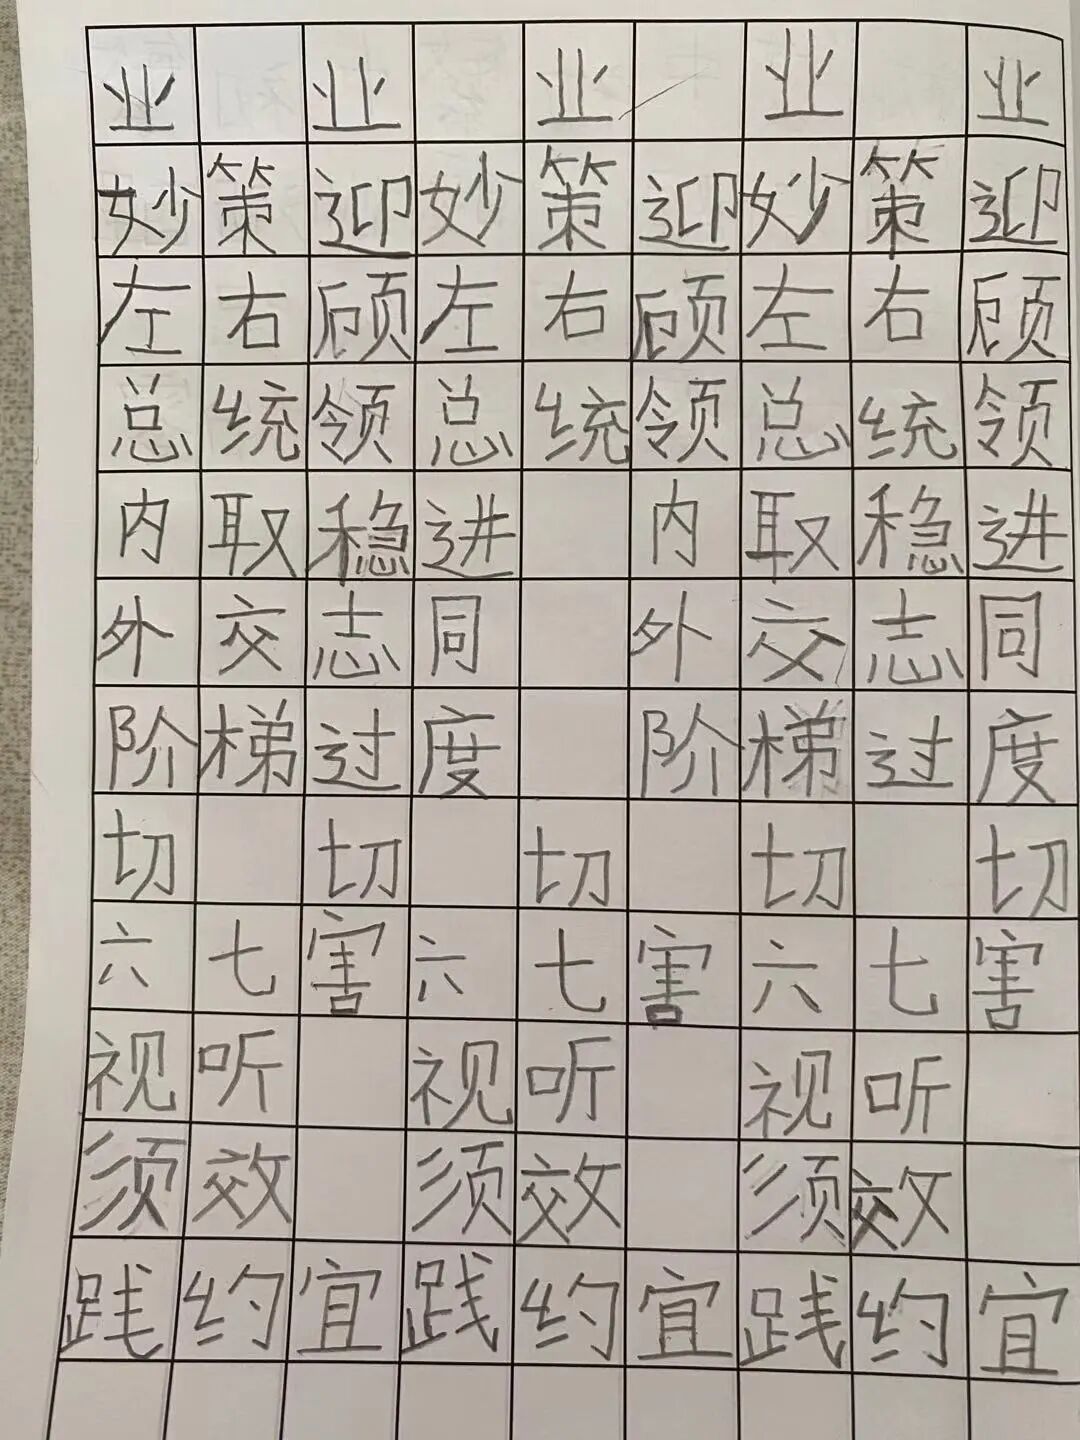 业 业 业 业 业
妙策迎妙策迎妙策迎
左右顾左右顾左右顾
总统领总统领总统领
内取稳进 内取稳进
外交志同 外交志同
阶梯过度 阶梯过度
切 切 切 切 切
六七害六七害六七害
视听 视听 视听
须效 须效 须效
践约宜践约宜践约宜